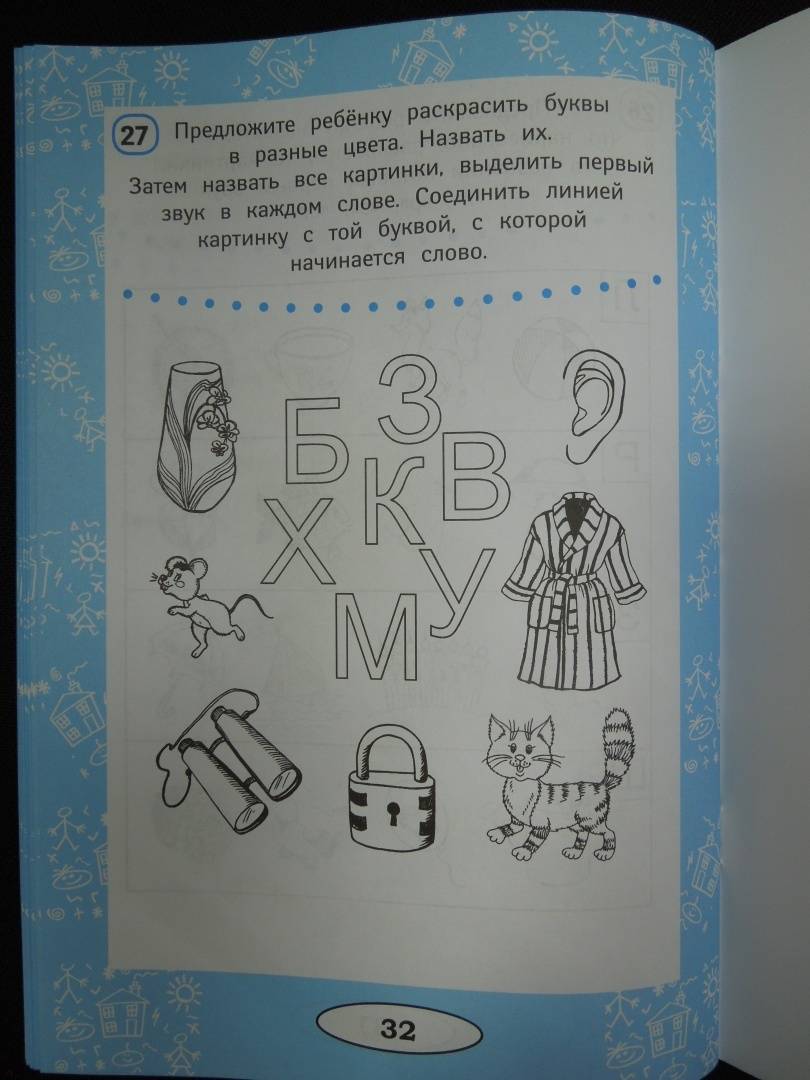 27 Предложите ребёнку раскрасить буквы
в разные цвета. Назвать их.
Затем назвать все картинки, выделить первый
звук в каждом слове. Соединить линией
картинку с той буквой, с которой
начинается слово.
З
Б
К В
Х
У
М
32